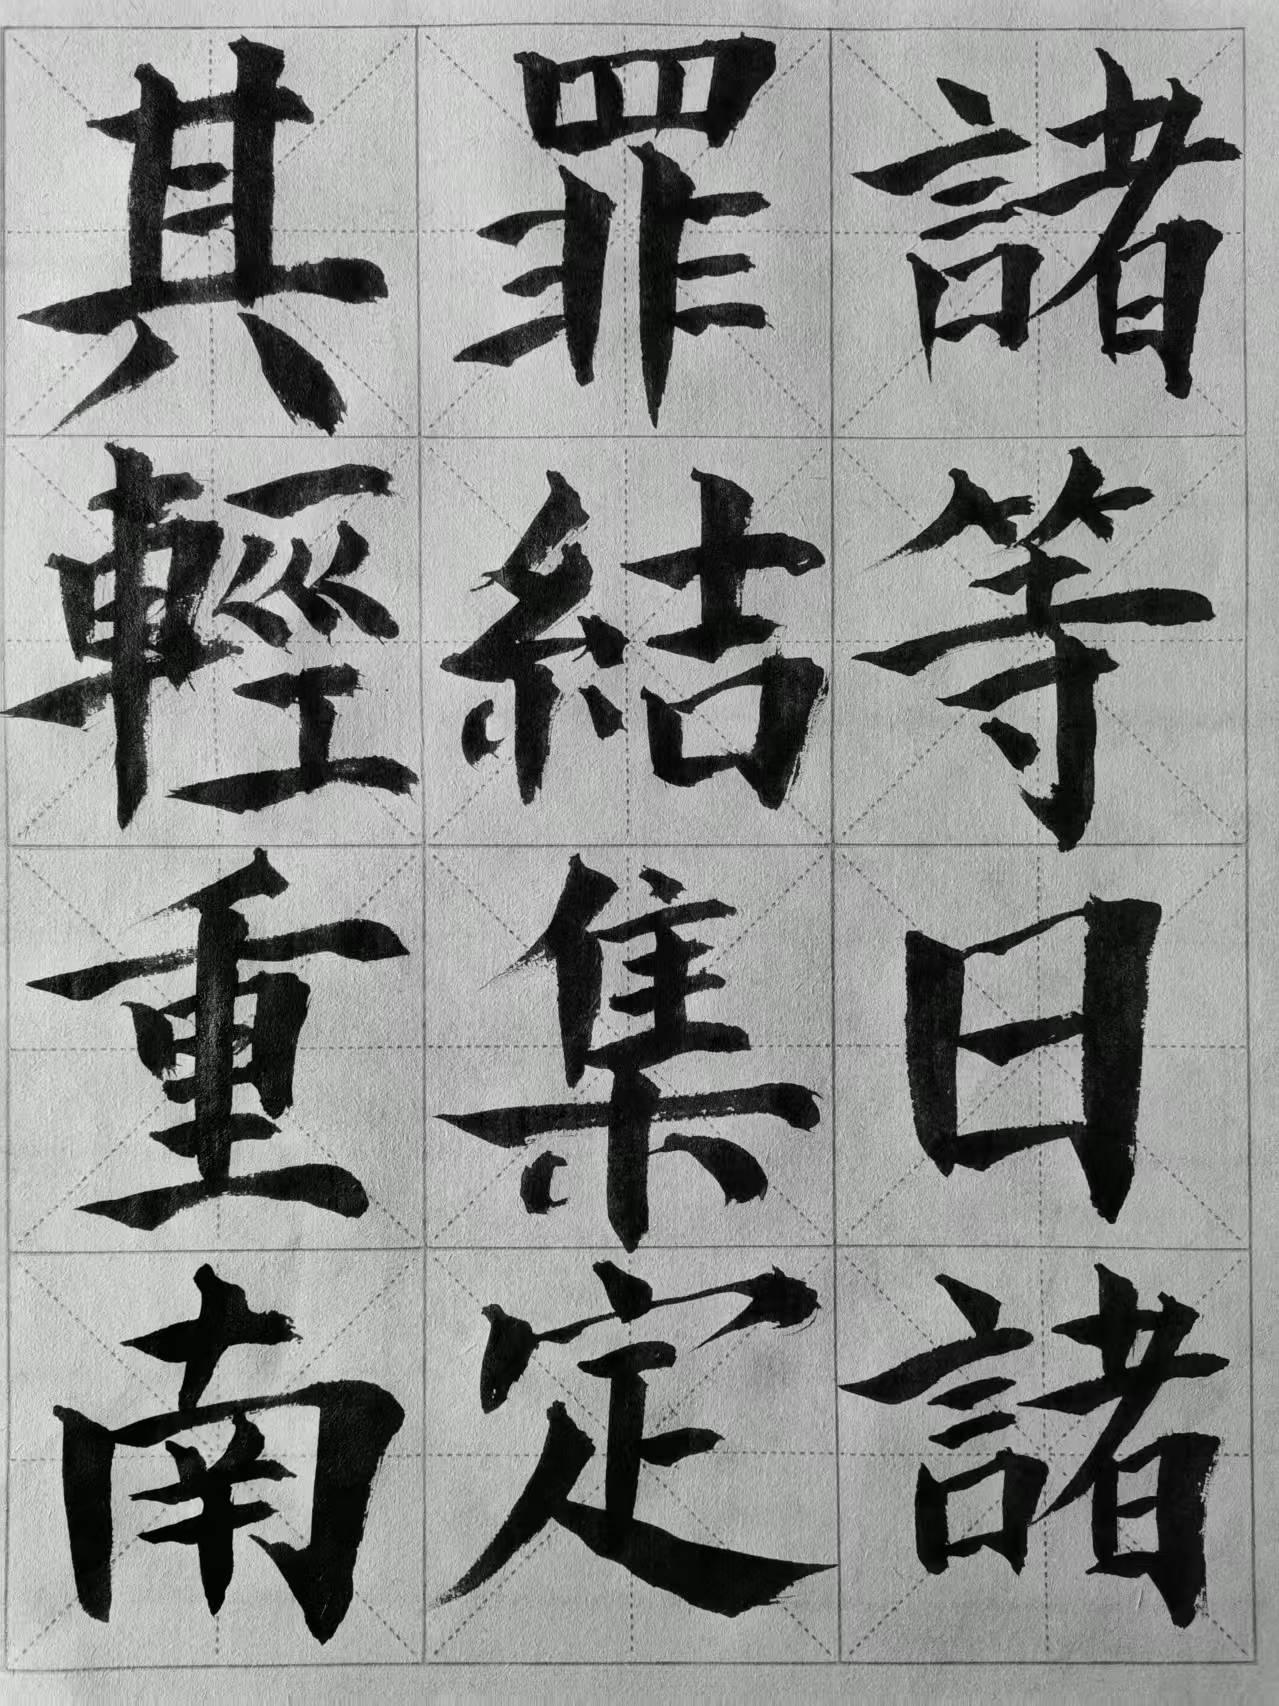 諸等日諸
罪結集定
其輕重南